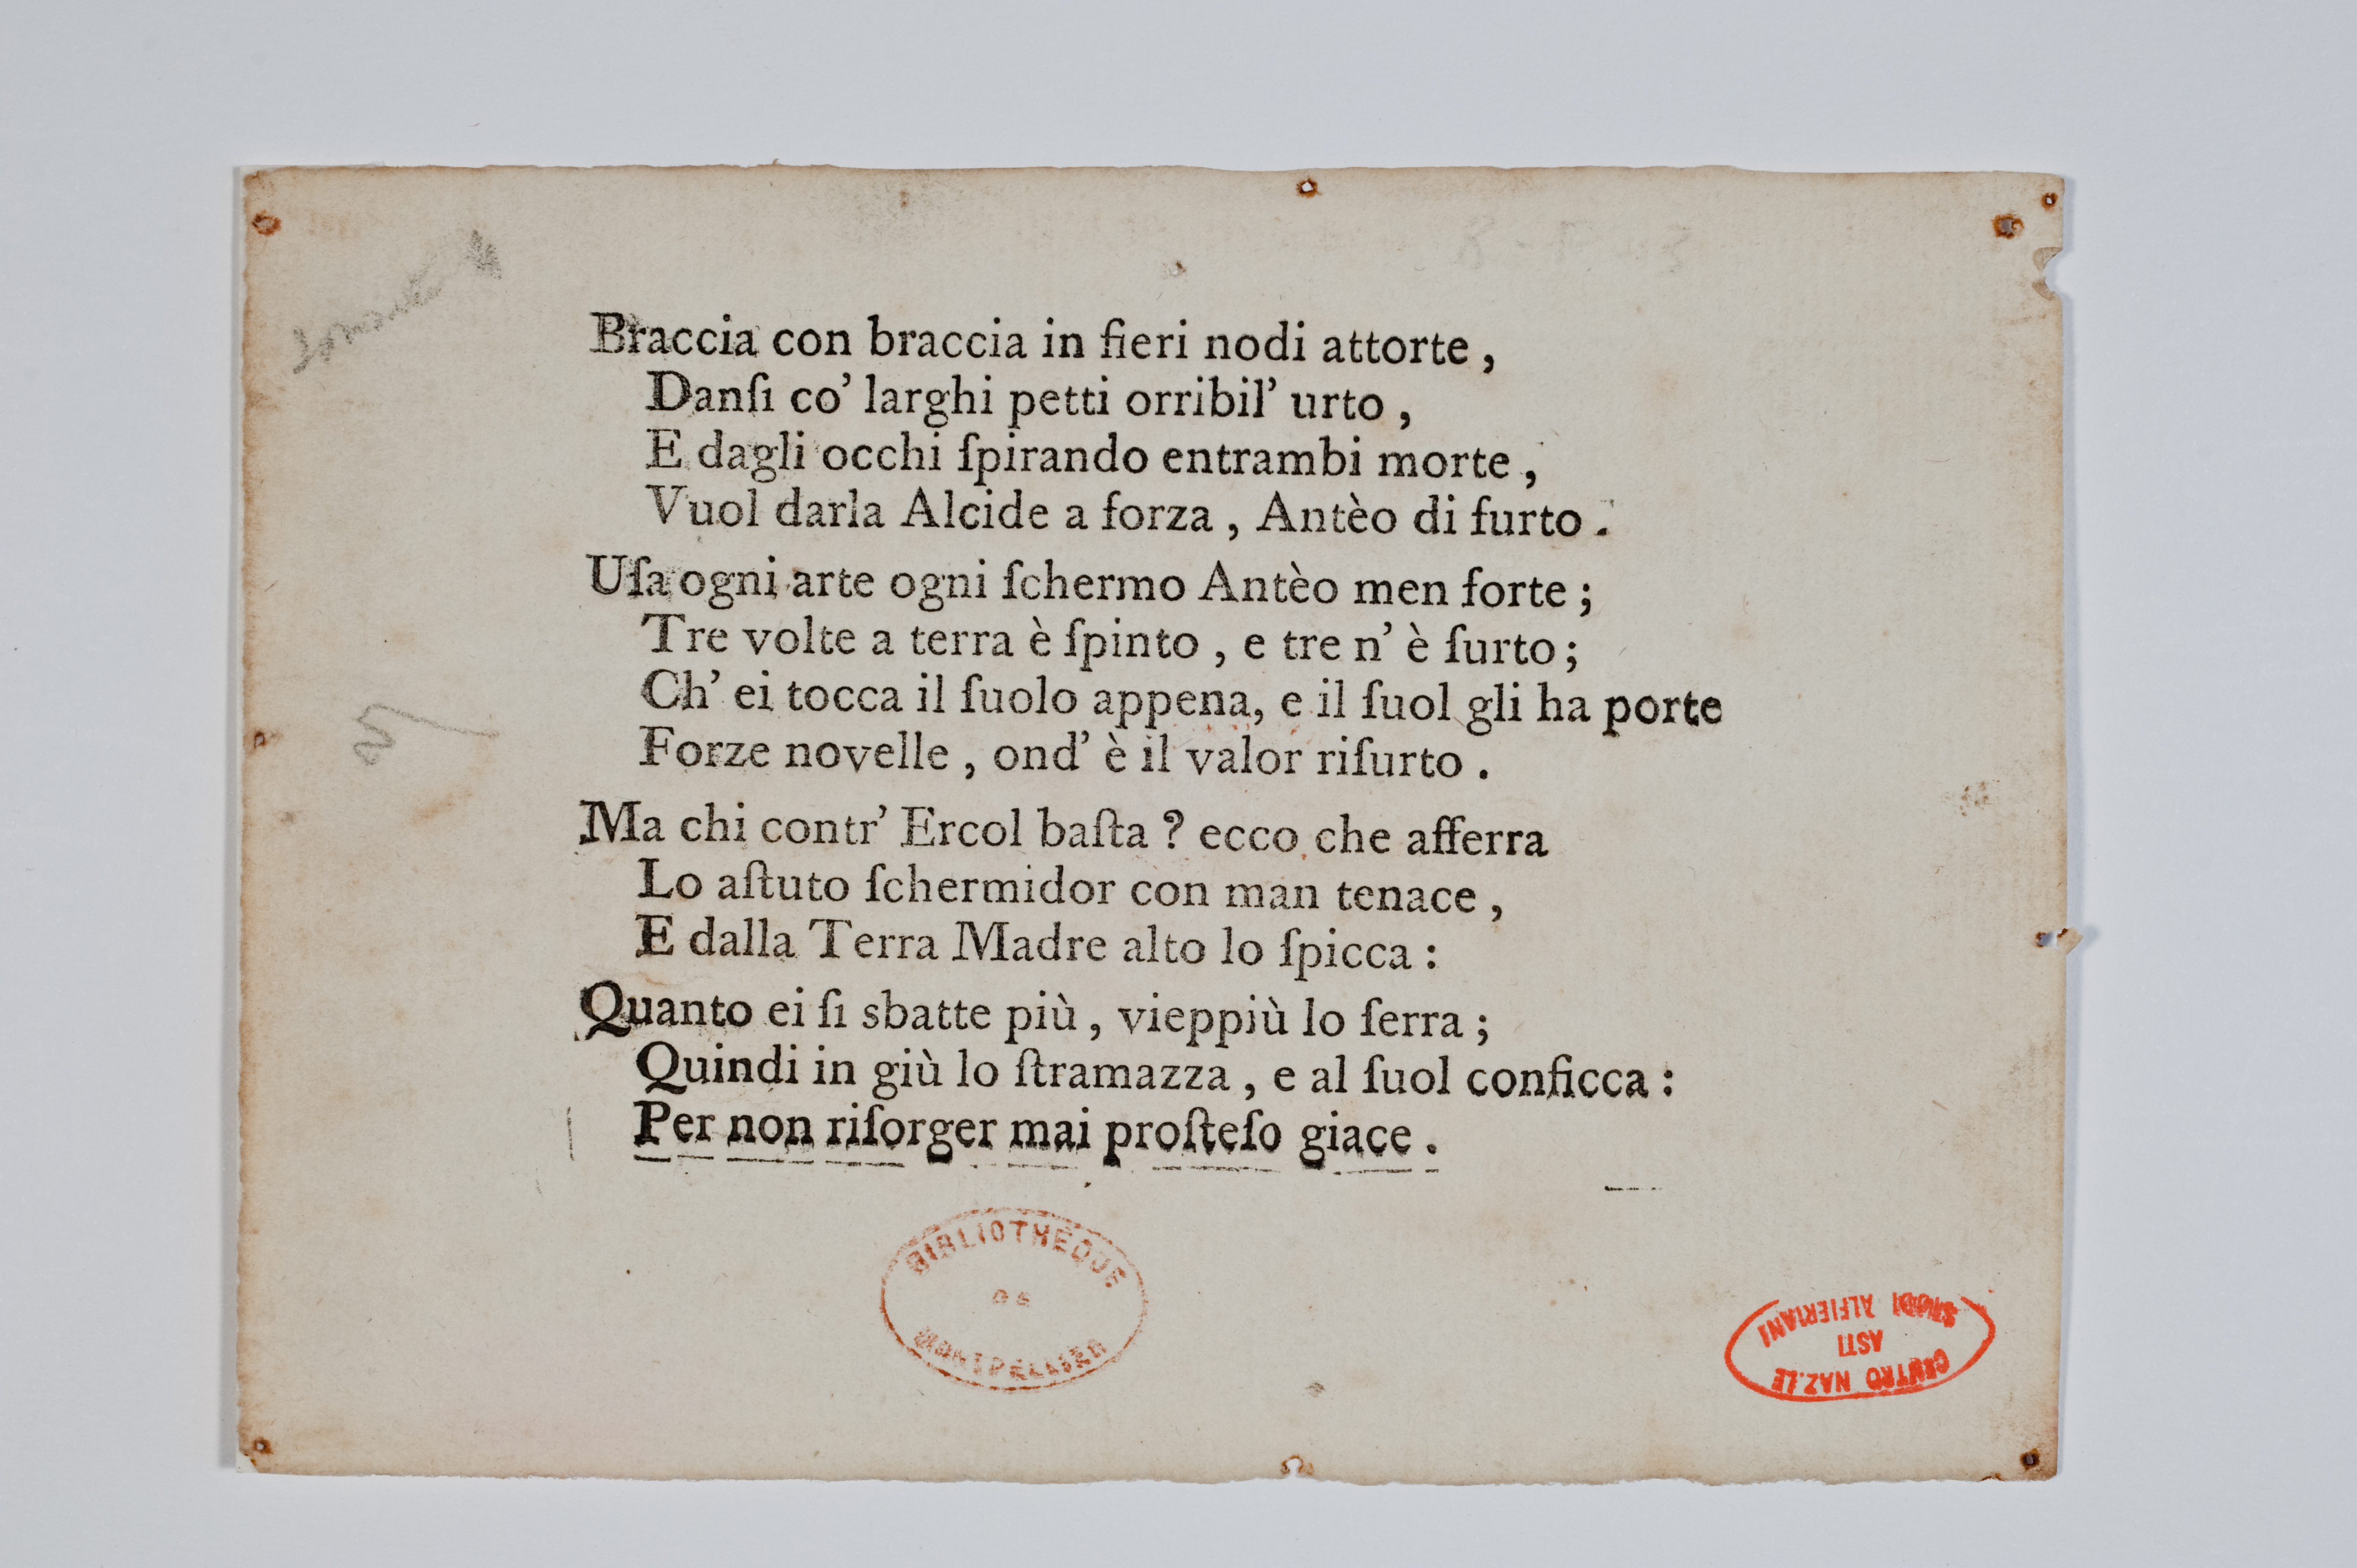 Braccia con braccia in fieri nodi attorte ,
Danſi co' larghi petti orribil' urto ,
E dagli occhi ſpirando entrambi morte ,
Vuol darla Alcide a forza , Antèo di furto .
Uſa ogni arte ogni ſchermo Antèo men forte ;
Tre volte a terra è ſpinto , e tre n' è ſurto ;
Ch' ei tocca il ſuolo appena, e il ſuol gli ha porte
Forze novelle , ond' è il valor riſurto .
Ma chi contr' Ercol baſta ? ecco che afferra
Lo aſtuto ſchermidor con man tenace ,
E dalla Terra Madre alto lo ſpicca :
Quanto ei ſi sbatte più , vieppiù lo ſerra ;
Quindi in giù lo ſtramazza , e al ſuol conficca :
Per non riſorger mai proſteſo giace .
BIBLIOTHÈQUE
DE
MONTPELLIER
CENTRO NAZ.LE
ASTI
STUDI ALFIERIANI